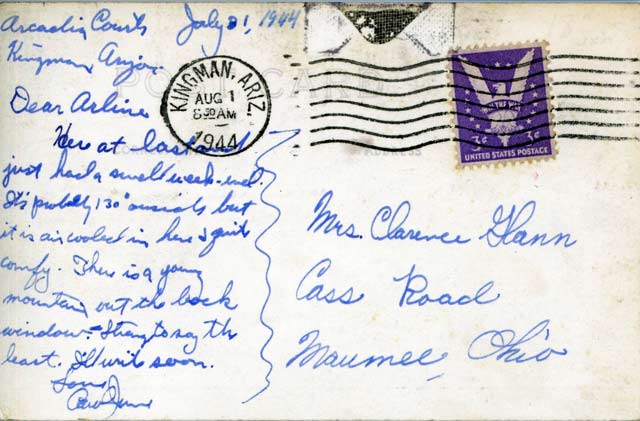 Arcadia Courts July 31, 1944
Kingman, Arizo.
Dear Arline
Here at last and
just had a swell week-end.
It's probably 130° outside but
it is air cooled in here & quite
comfy. There is a young
mountain out the back
window - Strang to say the
least. I'll write soon.
Love
POST CARD
ADDRESS
KINGMAN, ARIZ.
AUG 1
8 30 AM
1944
WIN THE WAR
3¢ 3¢
UNITED STATES POSTAGE
Mrs. Clarence Hann
Cass Road
Maumee, Ohio